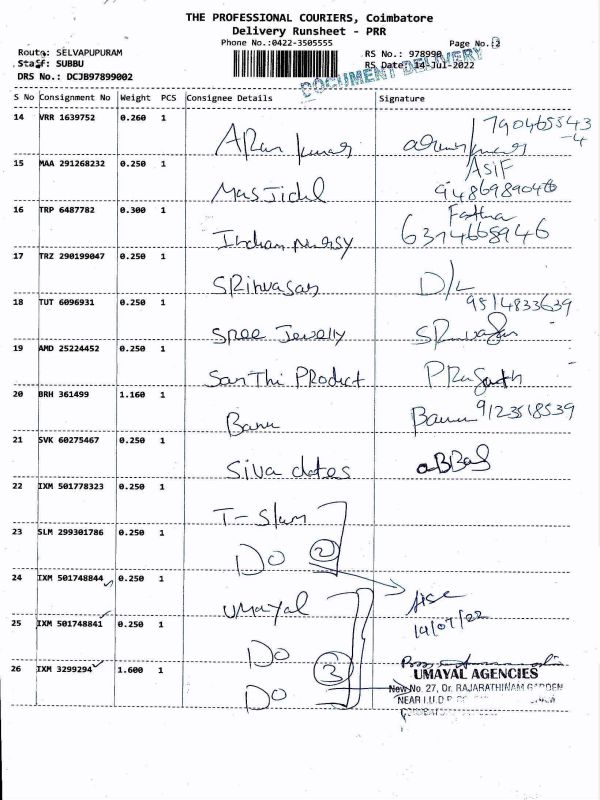 THE PROFESSIONAL COURIERS, Coimbatore
Delivery Runsheet - PRR
Phone No.:0422-3505555
Page No.:2
Route: SELVAPUPURAM
Staff: SUBBU
DRS No.: DCJB97899002
RS No.: 978990
RS Date: 14-Jul-2022
DOCUMENT DELIVERY
S No Consignment No Weight PCS Consignee Details Signature
14 VRR 1639752 0.260 1 Arun Kumar 790465543
-4
15 MAA 291268232 0.250 1 Masjidul Asif
9486989040
16 TRP 6487782 0.300 1 Indian Fathia
6374668946
17 TRZ 290199047 0.250 1 SRinvasan D/L
9514833639
18 TUT 6096931 0.250 1 Sree Jewelly
19 AMD 25224452 0.250 1 SanThi PRoduct PRasanth
20 BRH 361499 1.160 1 Banu Banu 9123518539
21 SVK 60275467 0.250 1 Siva dates aBBas
22 IXM 501778323 0.250 1 T-Slam
23 SLM 299301786 0.250 1 Do 2
24 IXM 501748844 0.250 1 umayal
14/07/22
25 IXM 501748841 0.250 1 Do
26 IXM 3299294 1.600 1 Do 3
UMAYAL AGENCIES
New No. 27, Dr. RAJARATHINAM GARDEN
NEAR I.U.D.P.